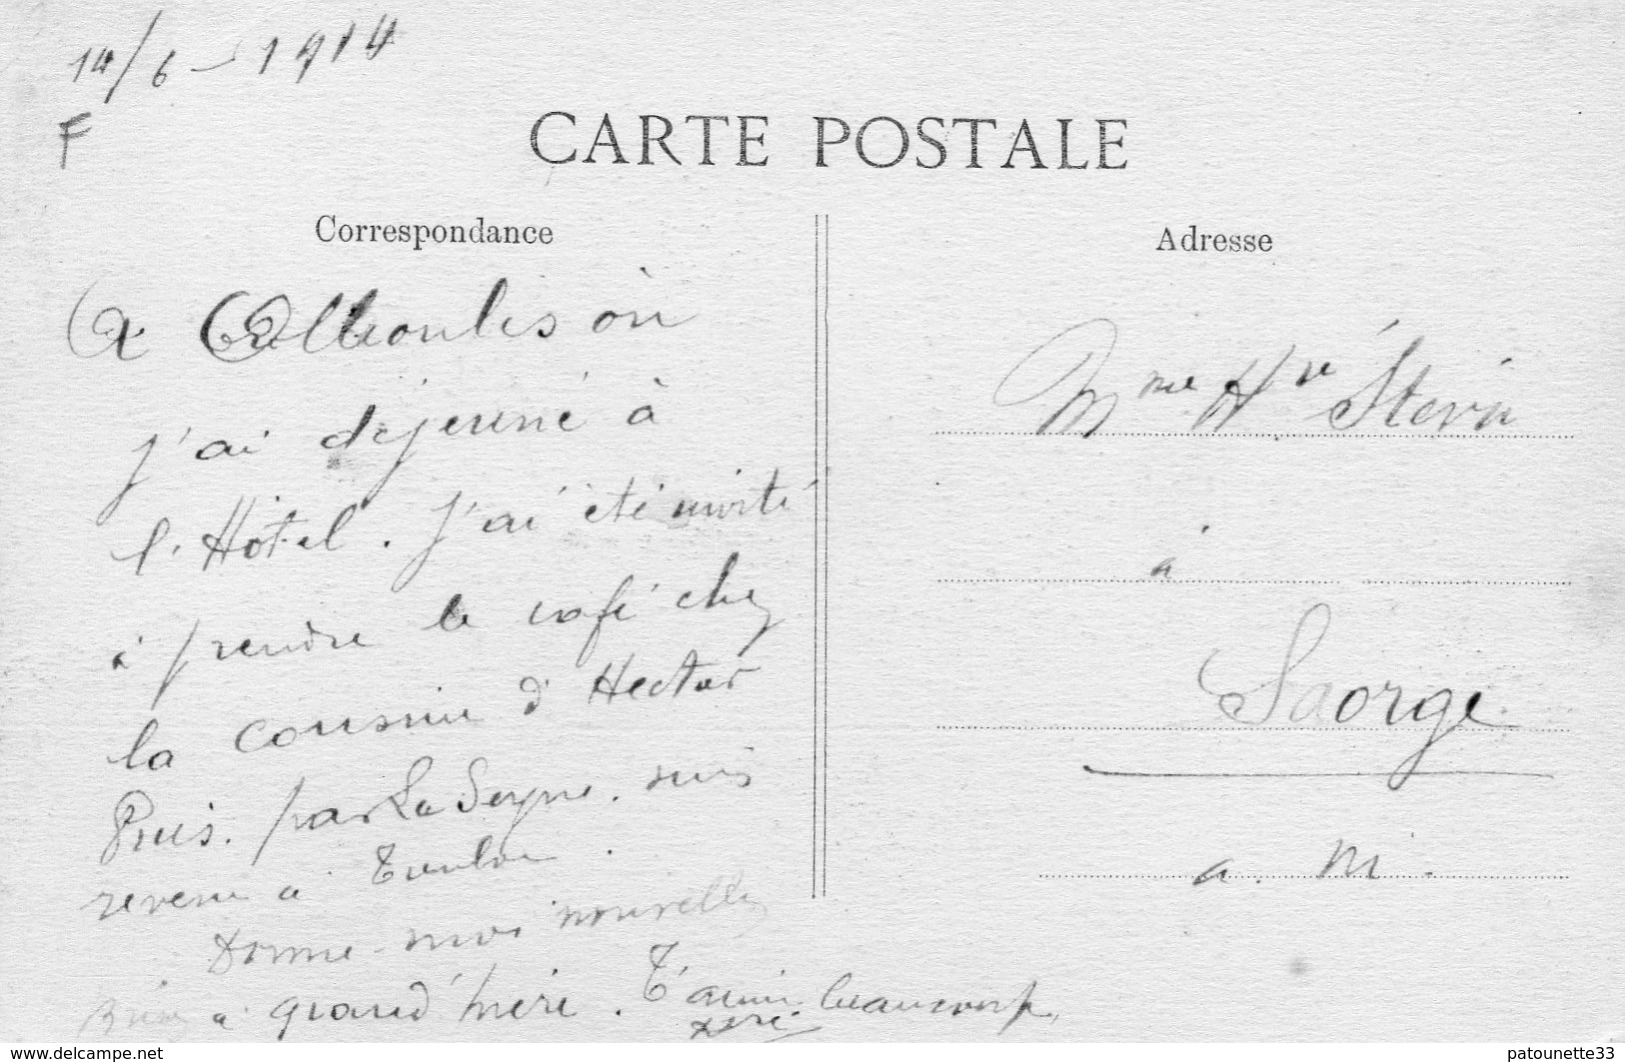 14/6 - 1914
F
CARTE POSTALE
Correspondance
A Ollioules où
j'ai déjeuné à
l'Hôtel. J'ai été invité
à prendre le café chez
la cousine d'Hector
Puis. par La Seyne. suis
revenu à Toulon.
Donne-moi nouvelles
Bises à grand'mère. T'aime beaucoup.
Adresse
Mme Hre Stévin
à
Saorge
a. m.
www.delcampe.net
patounette33